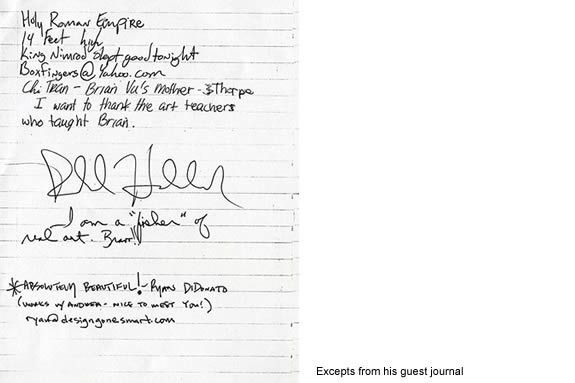 Holy Roman Empire
14 Feet high
King Nimrod slept good tonight
Boxfingers@Yahoo.com
Chi Tran - Brian Vu's mother - Thorpe
I want to thank the art teachers
who taught Brian.
I am a "fisher" of
real art. Bravo!!
*ABSOLUTELY BEAUTIFUL! - RYAN DIDONATO
(WORKS W/ ANDREA - NICE TO MEET YOU!)
ryan@designgonesmart.com
Excepts from his guest journal